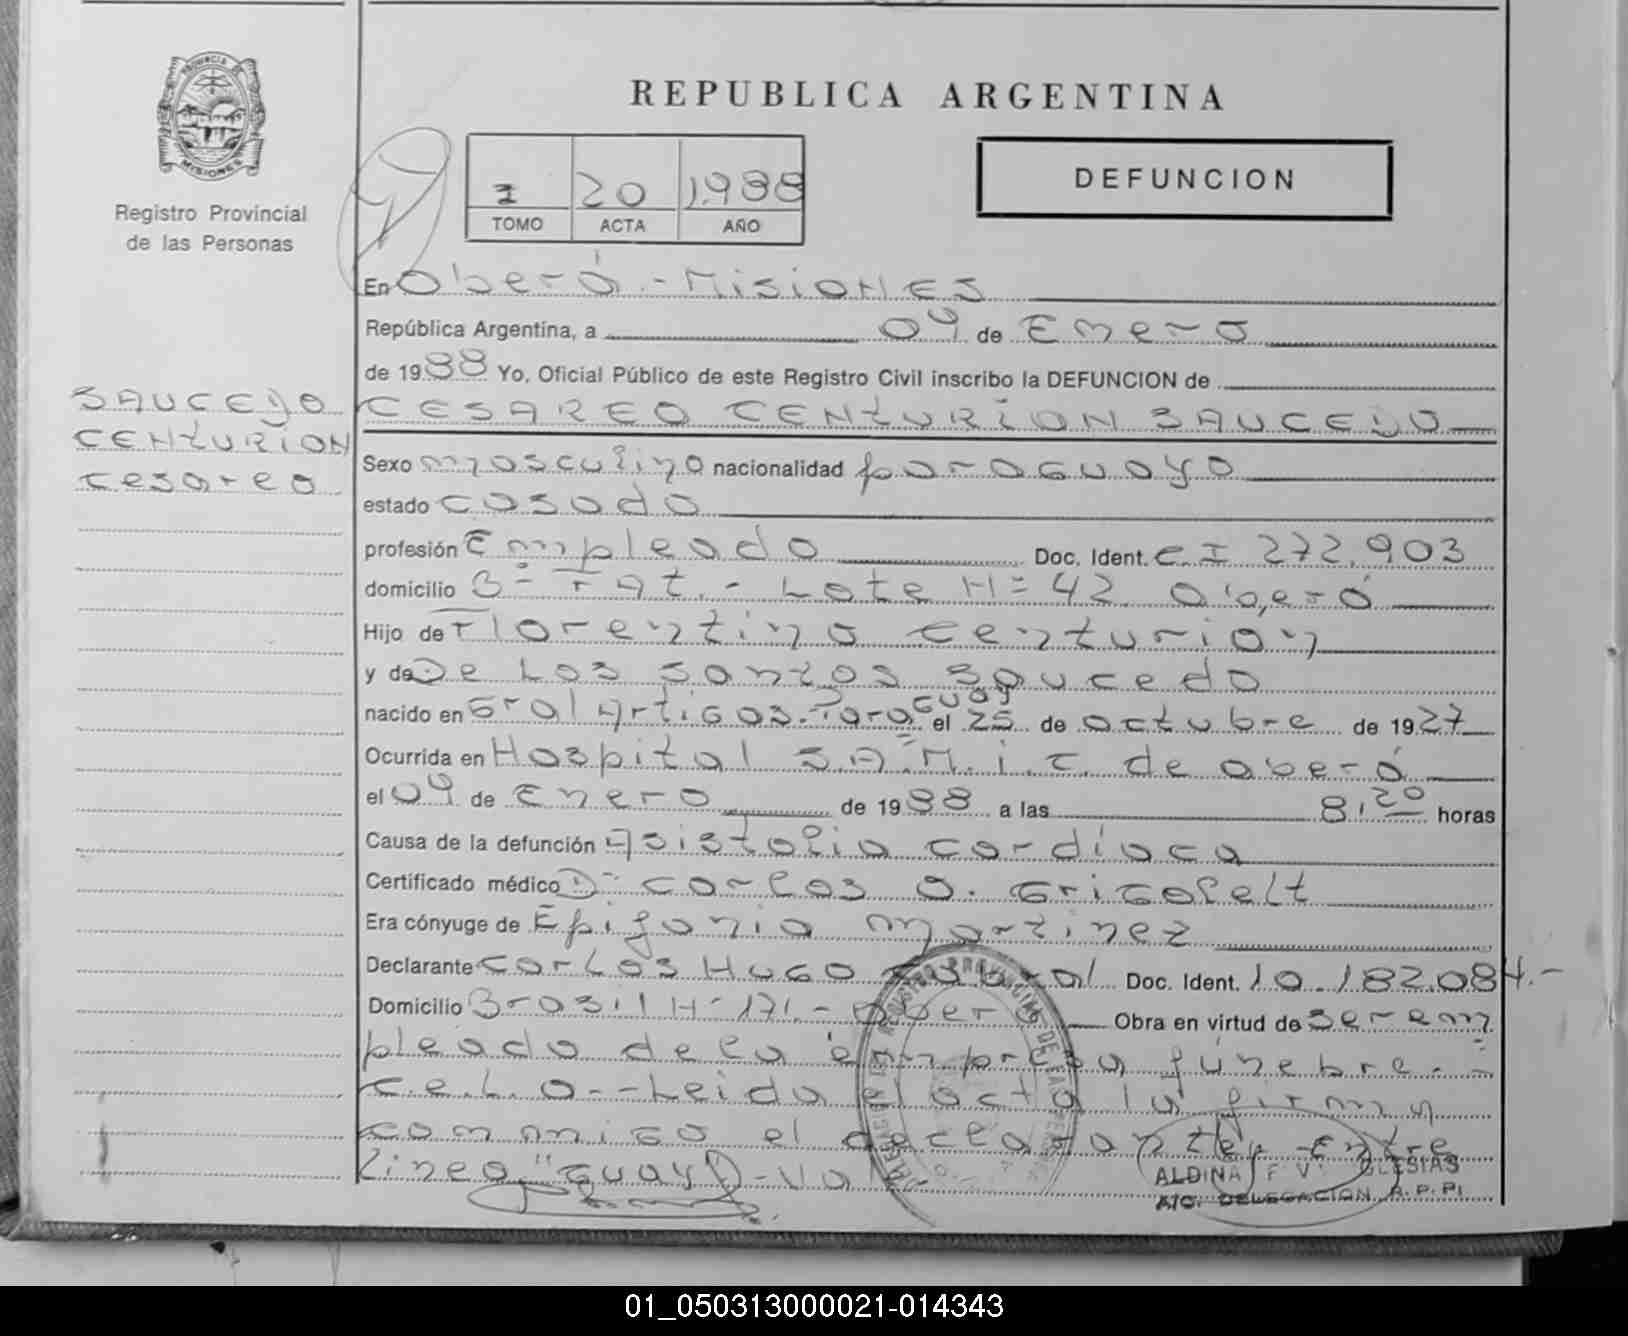 PROVINCIA DE
MISIONES
Registro Provincial
de las Personas
SAUCEDO
CENTURION
Cesareo
REPUBLICA ARGENTINA
I 20 1.988
TOMO ACTA AÑO
DEFUNCION
En Oberá.- Misiones
República Argentina, a 04 de Enero
de 1988 Yo, Oficial Público de este Registro Civil inscribo la DEFUNCION de
CESAREO CENTURION SAUCEDO
Sexo masculino nacionalidad paraguayo
estado casado
profesión Empleado Doc. Ident. C.I 272.903
domicilio Lote Nº 42 Oberá
Hijo de Florentino Centurion
y de De Los Santos Saucedo
nacido en Gral Artigas.-Paraguay el 25 de octubre de 1927
Ocurrida en Hospital S.A.M.i.c. de oberá
el 04 de Enero de 1988 a las 8,20 horas
Causa de la defunción Asistolia cardíaca
Certificado médico Dr Carlos O.
Era cónyuge de Epifania Martinez
Declarante Carlos Hugo Doc. Ident. 10.182.084.-
Domicilio Brasil Nº 171.- Oberá Obra en virtud de ser em
pleado de la empresa fúnebre.-
C.E.L.O.--Leida el acta la firma
conmigo el declarante, Entre
linea "guay"-Vale
REGISTRO PROVINCIAL DE LAS PERSONAS
ALDINA F. V. IGLESIAS
DELEGACION R.P.P.
01_050313000021-014343